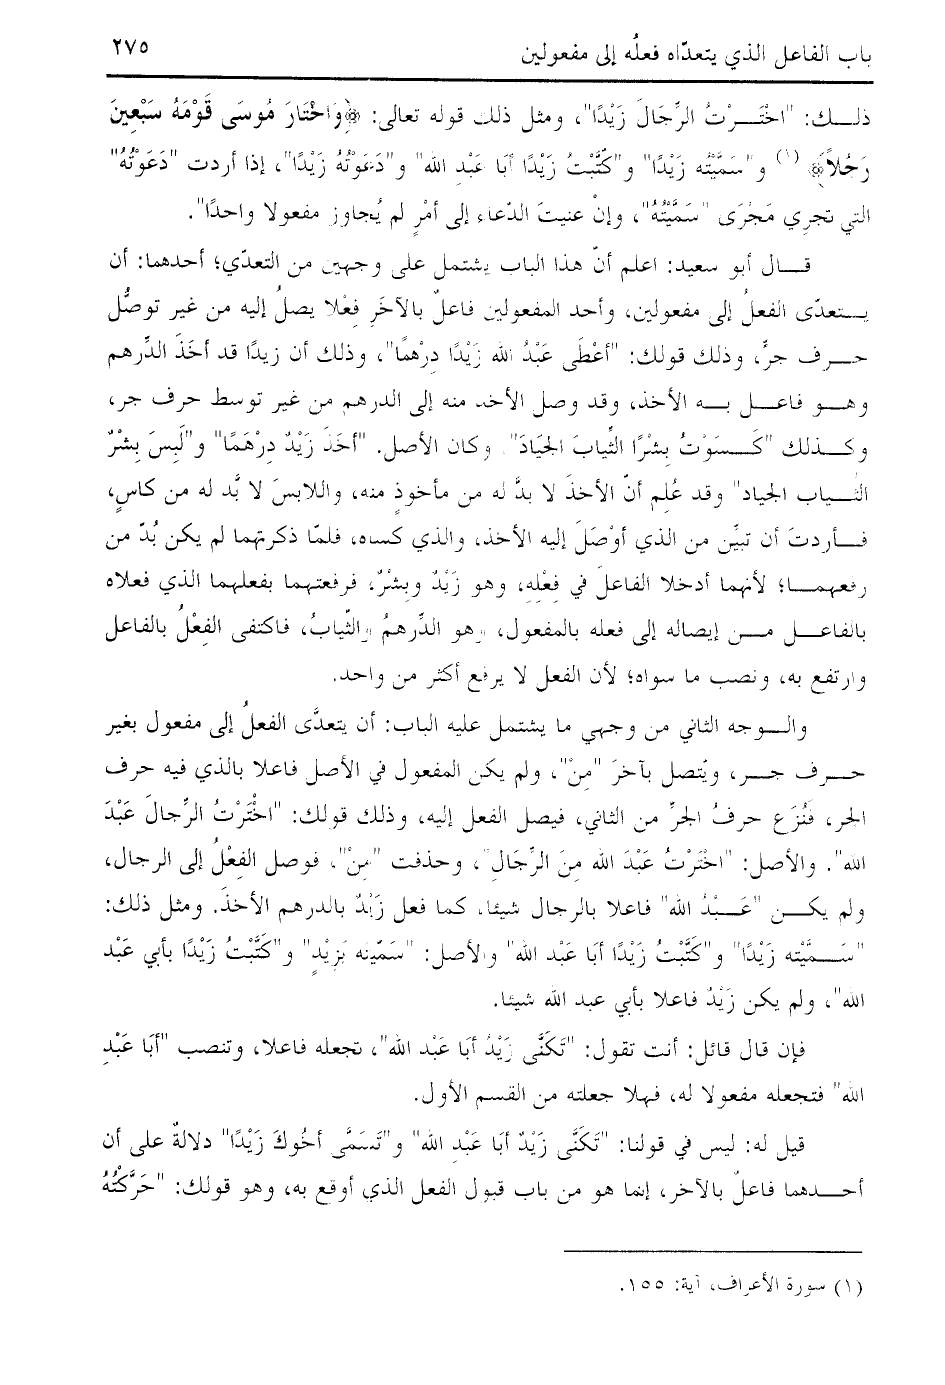 باب الفاعل الذي يتعدّاه فعلُه إلى مفعولين ٢٧٥
ذلك: "اخْتَرْتُ الرِّجَالَ زَيْدًا"، ومثل ذلك قوله تعالى: ﴿وَاخْتَارَ مُوسَى قَوْمَهُ سَبْعِينَ
رَجُلاً﴾ (١) و"سَمَّيْتُه زَيْدًا" و"كَنَّيْتُ زَيْدًا أبَا عَبْدِ الله" و"دَعَوْتُهُ زَيْدًا"، إذا أردت "دَعَوْتُهُ"
التي تجرِي مَجْرَى "سَمَّيْتُهُ"، وإنْ عنيتَ الدّعاء إلى أمْرٍ لم يُجاوز مفعولا واحدًا".
قال أبو سعيد: اعلم أنّ هذا الباب يشتمل على وجهين من التعدّي؛ أحدهما: أن
يتعدّى الفعلُ إلى مفعولين، وأحد المفعولين فاعلٌ بالآخَرِ فِعْلا يصلُ إليه من غير توصُّل
حرف جرٍّ، وذلك قولك: "أعْطَى عَبْدُ الله زَيْدًا دِرْهمًا"، وذلك أن زيدًا قد أخَذَ الدِّرهم
وهو فاعل به الأخذ، وقد وصل الأخذ منه إلى الدرهم من غير توسط حرف جر،
وكذلك "كَسَوْتُ بِشْرًا الثِّيابَ الجيَادَ" وكان الأصل. "أخَذَ زَيْدٌ دِرْهَمًا" و"لَبِسَ بِشْرٌ
الثياب الجياد" وقد عُلِم أنّ الأخذَ لا بدَّ له من مأخوذٍ منه، واللابسَ لا بَّد له من كاسٍ،
فأردتَ أن تبيَّن من الذي أوْصَلَ إليه الأخذ، والذي كساه، فلمّا ذكرتهما لم يكن بُدّ من
رفعهما؛ لأنهما أدخلا الفاعلَ في فِعْلِه، وهو زَيْدٌ وبِشْرٌ، فرفعتهما بفعلهما الذي فعلاه
بالفاعل من إيصاله إلى فعله بالمفعول، وهو الدِّرهمُ والثيابُ، فاكتفى الفِعْلُ بالفاعل
وارتفع به، ونصب ما سواه؛ لأن الفعل لا يرفع أكثر من واحد.
والوجه الثاني من وجهي ما يشتمل عليه الباب: أن يتعدَّى الفعلُ إلى مفعول بغير
حرف جر، ويتّصل بآخرَ "مِنْ"، ولم يكن المفعول في الأصل فاعلا بالذي فيه حرف
الجر، فنُزَع حرفُ الجرِّ من الثاني، فيصل الفعل إليه، وذلك قولك: "اخْتَرْتُ الرِّجالَ عَبْدَ
الله". والأصل: "اخْتَرْتُ عَبْدَ الله مِنَ الرِّجَالِ"، وحذفت "مِنْ"، فوصل الفِعْلُ إلى الرجال،
ولم يكن "عَبْدُ الله" فاعلا بالرجال شيئا، كما فعل زَيْدٌ بالدرهم الأخذَ. ومثل ذلك:
"سَمَّيْته زَيْدًا" و"كَنَّيْتُ زَيْدًا أبَا عَبْد الله" والأصل: "سَمَّيته بَزيْدٍ" و"كَنَّيْتُ زَيْدًا بأبي عَبْد
الله"، ولم يكن زَيْدٌ فاعلا بأبي عبد الله شيئا.
فإن قال قائل: أنت تقول: "تَكَنَّى زَيْدُ أبَا عَبْد الله"، تجعله فاعلا، وتنصب "أبَا عَبْدِ
الله" فتجعله مفعولا له، فهلا جعلته من القسم الأول.
قيل له: ليس في قولنا: "تَكَنَّى زَيْدٌ أبَا عَبْدِ الله" و"تَسَمَّى أخُوكَ زَيْدًا" دلالةٌ على أن
أحدهما فاعلٌ بالآخر، إنما هو من باب قبول الفعل الذي أوقع به، وهو قولك: "حَرَّكْتُهُ
(١) سورة الأعراف، آية: ١٥٥.